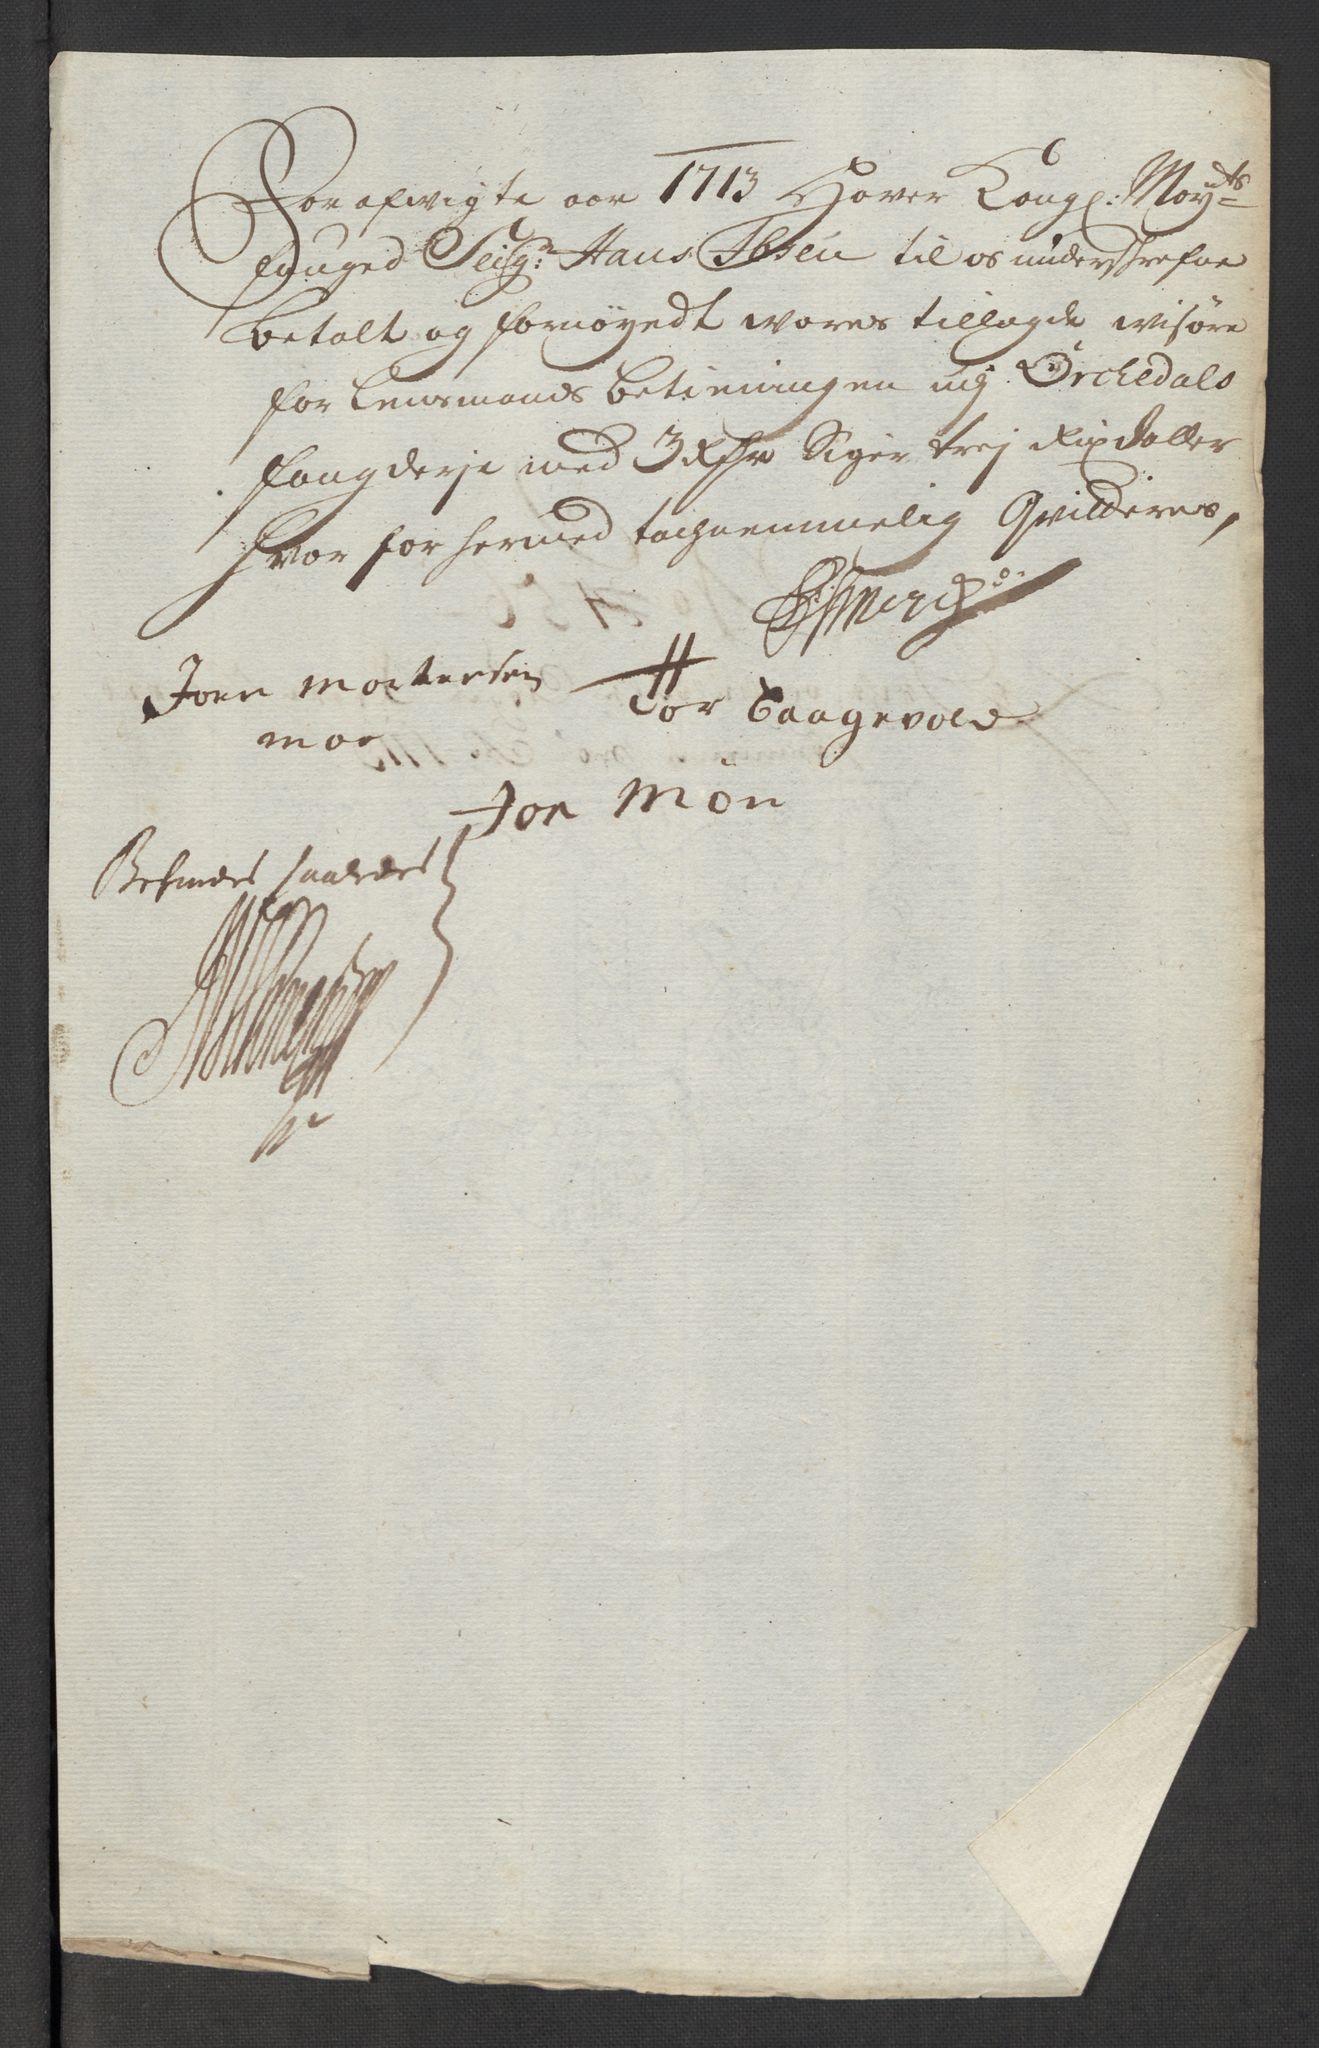 For afwigte aar 1713 Hafver Kongl: May:ts
fouged Seigr: Hans Ibsen til os underschrefne
betalt og fornøyedt wores tillagde wisøre
for Lensmands betieningen udj Ørchedals
fougderje med 3 Rdr Siger trej Rixdaller
hvor for hermed tachnemmelig Qvitteres,
Joen Mortensen
moe
Tor Baagevold
Joe Møn
Befindes saaledes